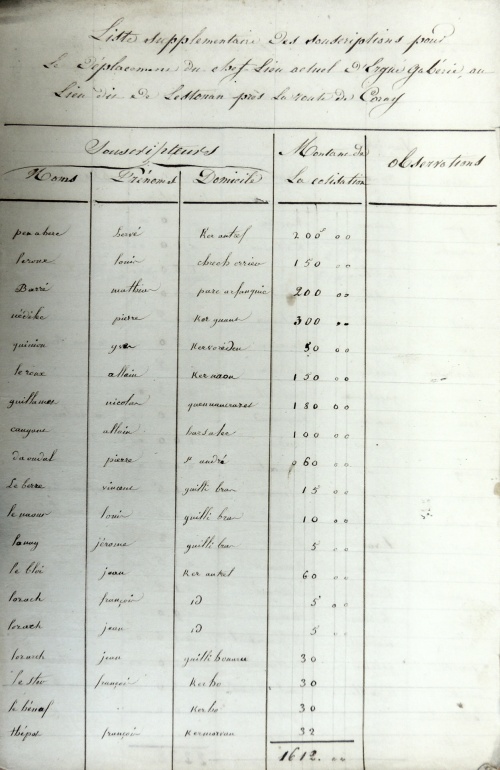 Liste supplementaire des souscriptions pour
Le Déplacement du chef Lieu actuel d'Ergué gabéric au
Lieu dit de Lestonan près la route de Coray
Souscripteurs Montant de observations
Noms Prénoms Domicile La cotisation
penabere hervé Ker autret 200 00
leroux louis 150 00
Barré mathieu 200 00
pierre Ker 300 00
guinion yves Kervoréden 50 00
le roux allain Kernaou 150 00
guillamet nicolas 180 00
allain 100 00
davudal pierre st andré 060 00
Le berre vincent quilli bra 15 00
le naour louis quilli bra 10 00
lanoy jérome quilli bra 5 00
le bloi jean Ker autret 60 00
lozach françois id 5 00
lozach jean id 5 00
lozach jean 30
le françois Kerho 30
le bénaf . Kerho 30
thépot françois Kermorvan 32
1612. 00